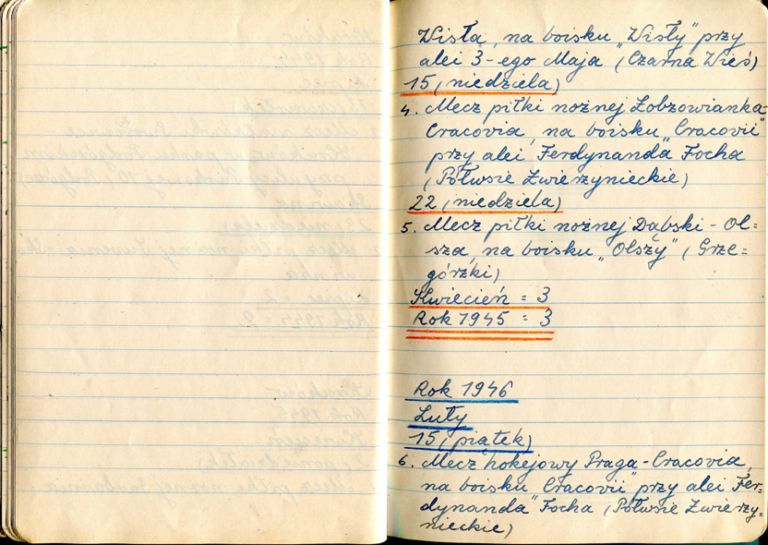 Wisła, na boisku „Wisły” przy
alei 3-ego Maja (Czarna Wieś)
15 (niedziela)
4. Mecz piłki nożnej Łobzowianka-
Cracovia, na boisku „Cracovii”
przy alei Ferdynanda Focha
(Półwsie Zwierzynieckie)
22 (niedziela)
5. Mecz piłki nożnej Dąbski - Ol-
sza, na boisku „Olszy” (Grze=
górzki)
Kwiecień = 3
Rok 1945 = 3
Rok 1946
Luty
15 (piątek)
6. Mecz hokejowy Praga-Cracovia,
na boisku „Cracovii” przy alei Fer=
dynanda Focha (Półwsie Zwierzy=
nieckie)